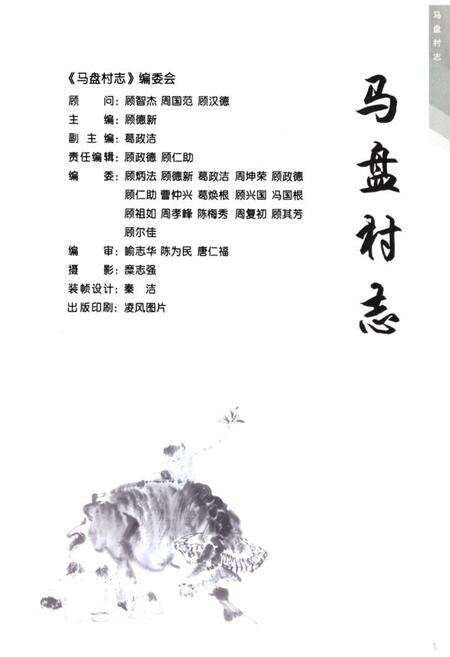 马盘村志
《马盘村志》编委会
顾　　问：顾智杰 周国范 顾汉德
主　　编：顾德新
副 主 编：葛政洁
责任编辑：顾政德 顾仁助
编　　委：顾炳法 顾德新 葛政洁 周坤荣 顾政德
顾仁助 曹仲兴 葛焕根 顾兴国 冯国根
顾祖如 周孝峰 陈梅秀 周复初 顾其芳
顾尔佳
编　　审：喻志华 陈为民 唐仁福
摄　　影：糜志强
装帧设计：秦　洁
出版印刷：凌风图片
马盘村志
1